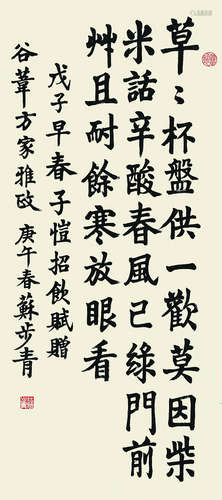 草〻杯盤供一歡莫因柴
米話辛酸春風已綠門前
艸且耐餘寒放眼看
戊子早春子愷招飲賦贈
谷葦方家雅政庚午春蘇步青